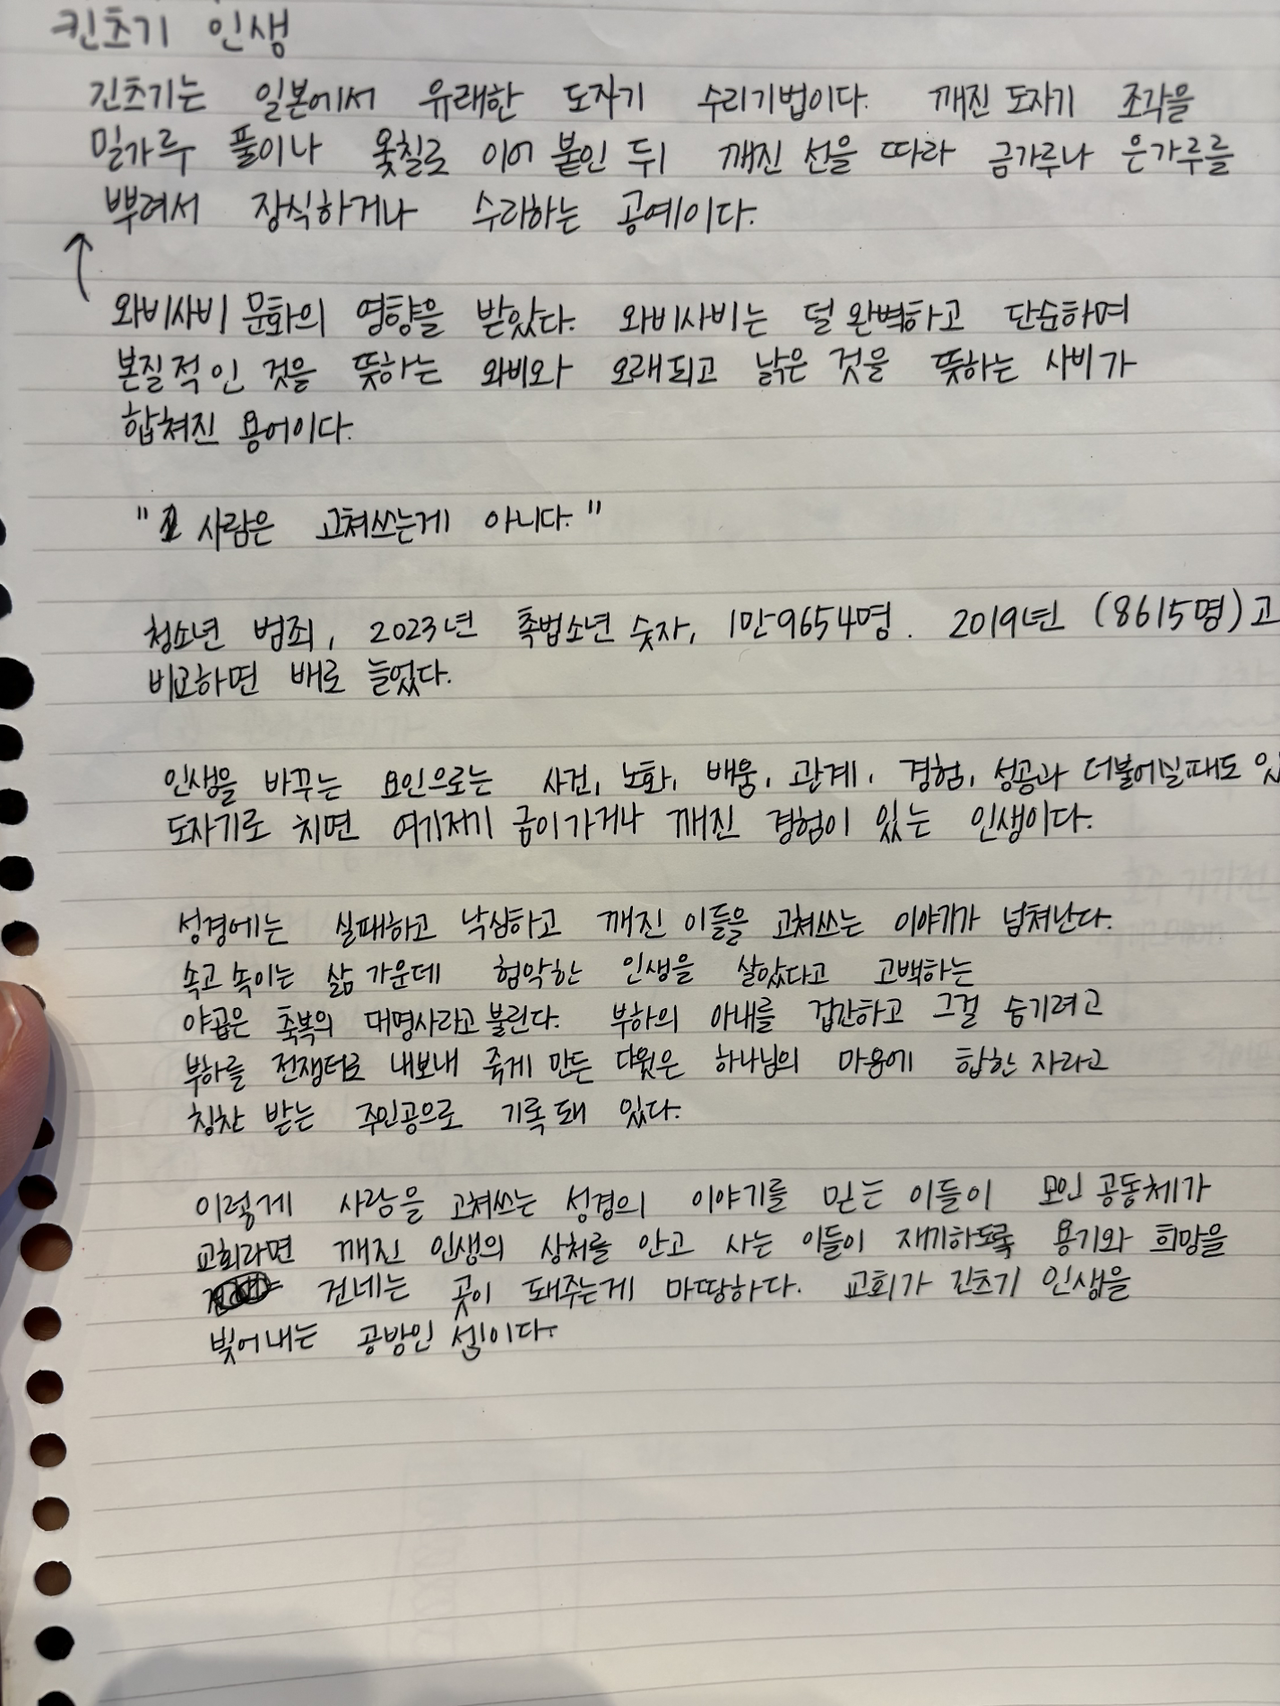 킨초기 인생
긴츠기는 일본에서 유래한 도자기 수리기법이다. 깨진 도자기 조각을
밀가루 풀이나 옻칠로 이어 붙인 뒤 깨진 선을 따라 금가루나 은가루를
뿌려서 장식하거나 수리하는 공예이다.
↑
와비사비 문화의 영향을 받았다. 와비사비는 덜 완벽하고 단순하며
본질적인 것을 뜻하는 와비와 오래되고 낡은 것을 뜻하는 사비가
합쳐진 용어이다.
" 사람은 고쳐쓰는게 아니다."
청소년 범죄, 2023년 촉법소년 숫자, 1만9654명. 2019년 (8615명)고
비교하면 배로 늘었다.
인생을 바꾸는 요인으로는 사건, 노화, 배움, 관계, 경험, 성공과 더불어실패도 있
도자기로 치면 여기저기 금이가거나 깨진 경험이 있는 인생이다.
성경에는 실패하고 낙심하고 깨진 이들을 고쳐쓰는 이야기가 넘쳐난다.
속고 속이는 삶 가운데 험악한 인생을 살았다고 고백하는
야곱은 축복의 대명사라고 불린다. 부하의 아내를 겁간하고 그걸 숨기려고
부하를 전쟁터로 내보내 죽게 만든 다윗은 하나님의 마음에 합한 자라고
칭찬 받는 주인공으로 기록돼 있다.
이렇게 사람을 고쳐쓰는 성경의 이야기를 믿는 이들이 모인 공동체가
교회라면 깨진 인생의 상처를 안고 사는 이들이 재기하도록 용기와 희망을
건네는 곳이 돼주는게 마땅하다. 교회가 긴츠기 인생을
빚어내는 공방인 셈이다.